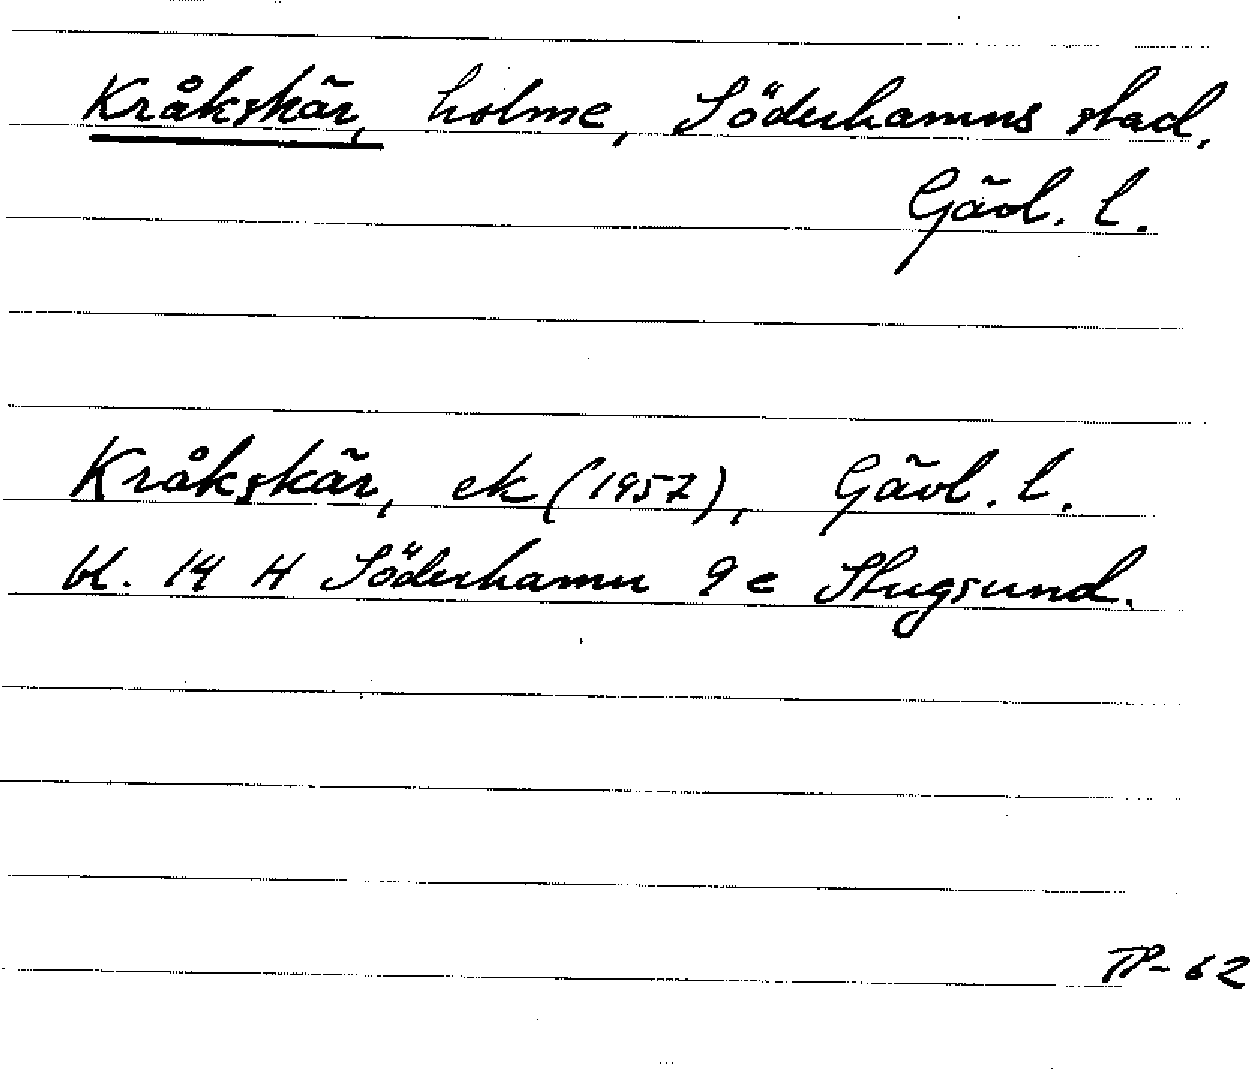 Kråkskär, holme, Söderhamns stad,
Gävl. l.
Kråkskär, ek (1957), Gävl. l.
bl. 14 H Söderhamn 9 e Stugsund.
TP-62